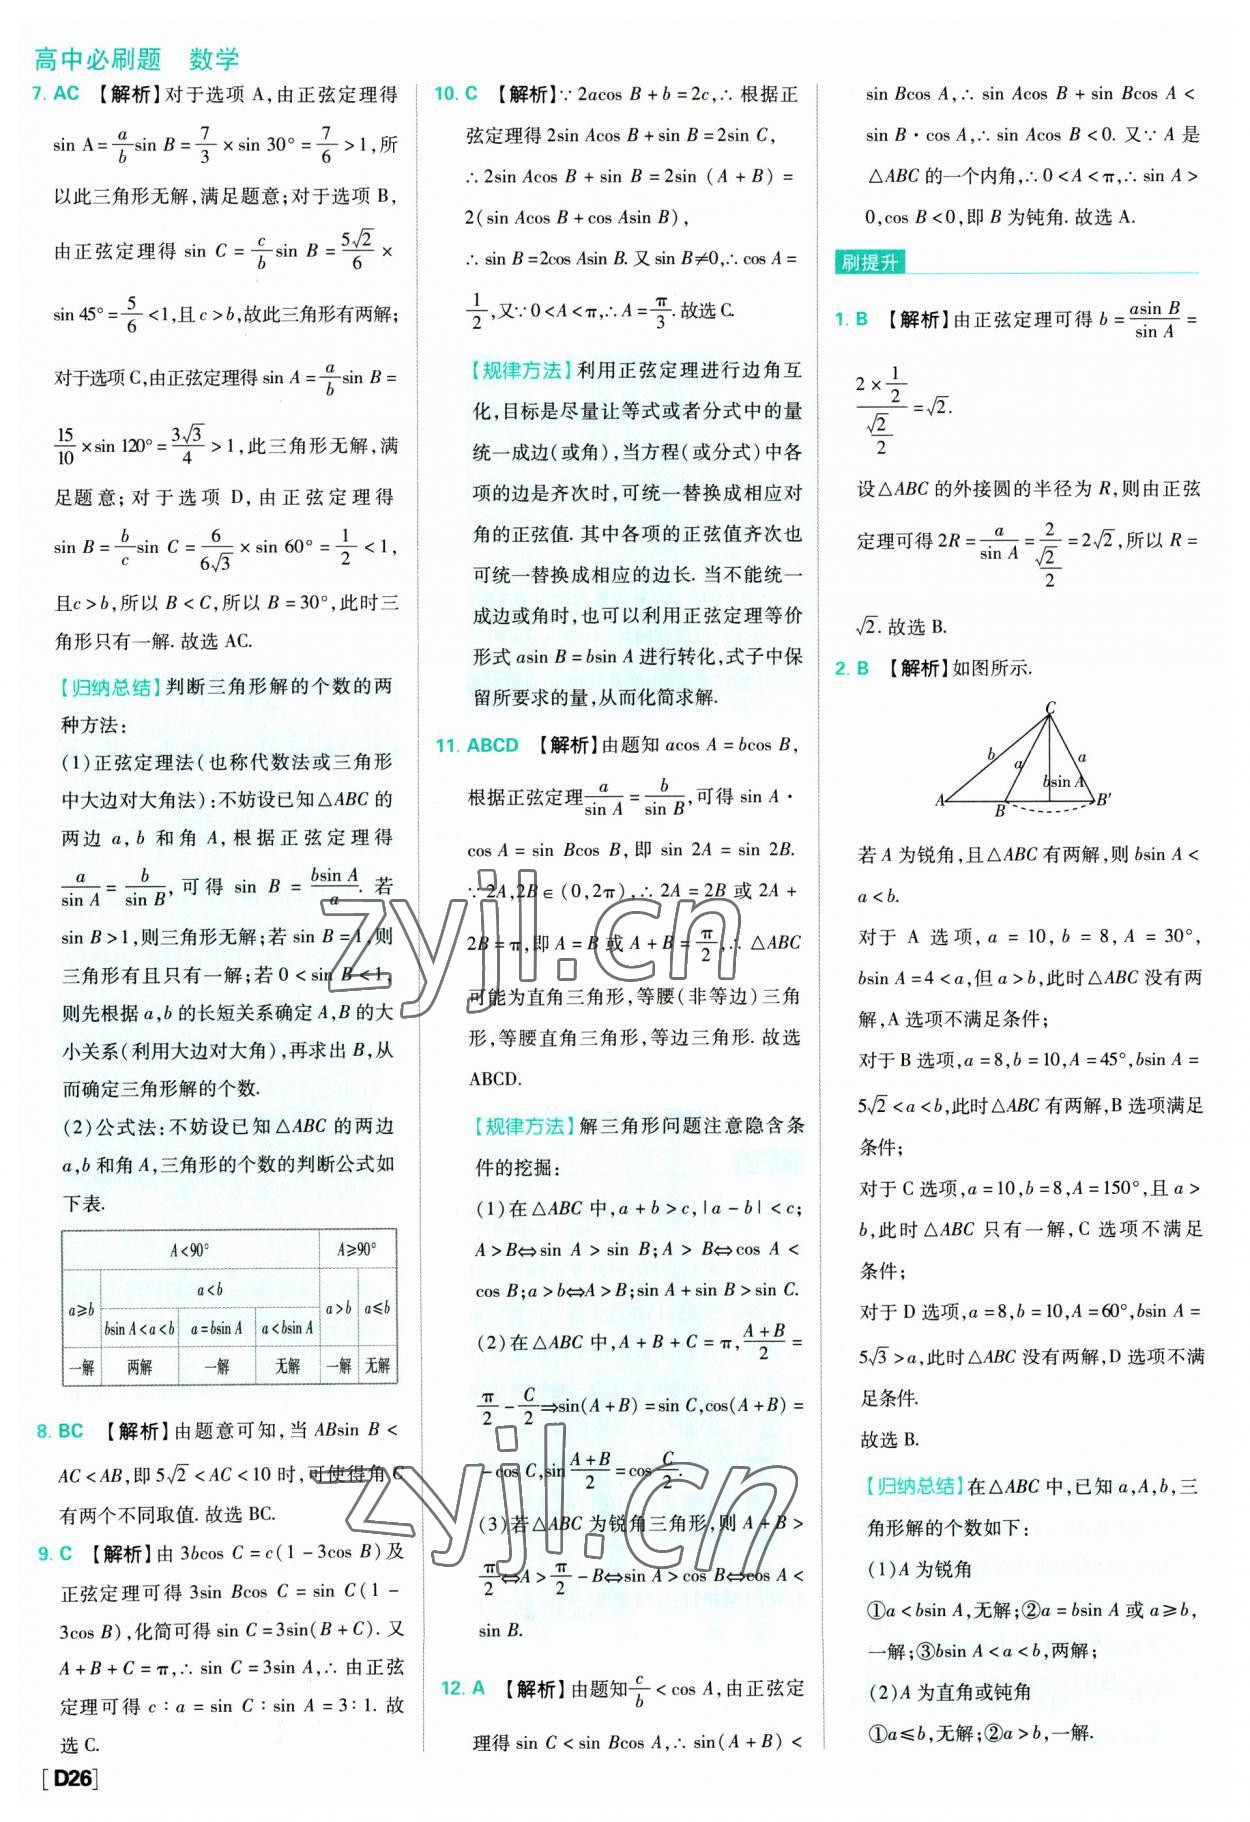 高中必刷题 数学
7. AC 【解析】对于选项 A,由正弦定理得
sin A=a/b sin B=7/3×sin 30°=7/6>1,所
以此三角形无解,满足题意;对于选项 B,
由正弦定理得 sin C=c/b sin B=5√2/6×
sin 45°=5/6<1,且 c>b,故此三角形有两解;
对于选项 C,由正弦定理得 sin A=a/b sin B=
15/10×sin 120°=3√3/4>1,此三角形无解,满
足题意;对于选项 D,由正弦定理得
sin B=b/c sin C=6/6√3×sin 60°=1/2<1,
且c>b,所以 B<C,所以 B=30°,此时三
角形只有一解. 故选 AC.
【归纳总结】判断三角形解的个数的两
种方法:
(1)正弦定理法(也称代数法或三角形
中大边对大角法):不妨设已知△ABC 的
两边 a,b 和角 A,根据正弦定理得
a/sin A=b/sin B,可得 sin B=bsin A/a. 若
sin B>1,则三角形无解;若 sin B=1,则
三角形有且只有一解;若 0<sin B<1,
则先根据 a,b 的长短关系确定 A,B 的大
小关系(利用大边对大角),再求出 B,从
而确定三角形解的个数.
(2)公式法:不妨设已知△ABC 的两边
a,b 和角 A,三角形的个数的判断公式如
下表.
A<90° A≥90°
a≥b a<b a>b a≤b
bsin A<a<b a=bsin A a<bsin A
一解 两解 一解 无解 一解 无解
8. BC 【解析】由题意可知,当 ABsin B<
AC<AB,即 5√2<AC<10 时,可使得角 C
有两个不同取值. 故选 BC.
9. C 【解析】由 3bcos C=c(1-3cos B)及
正弦定理可得 3sin Bcos C=sin C(1-
3cos B),化简可得 sin C=3sin(B+C). 又
A+B+C=π,∴ sin C=3sin A,∴ 由正弦
定理可得 c∶a=sin C∶sin A=3∶1. 故
选 C.
[D26]
10. C 【解析】∵ 2acos B+b=2c,∴ 根据正
弦定理得 2sin Acos B+sin B=2sin C,
∴ 2sin Acos B+sin B=2sin (A+B)=
2(sin Acos B+cos Asin B),
∴ sin B=2cos Asin B. 又 sin B≠0,∴ cos A=
1/2,又∵ 0<A<π,∴ A=π/3. 故选 C.
【规律方法】利用正弦定理进行边角互
化,目标是尽量让等式或者分式中的量
统一成边(或角),当方程(或分式)中各
项的边是齐次时,可统一替换成相应对
角的正弦值. 其中各项的正弦值齐次也
可统一替换成相应的边长. 当不能统一
成边或角时,也可以利用正弦定理等价
形式 asin B=bsin A 进行转化,式子中保
留所要求的量,从而化简求解.
11. ABCD 【解析】由题知 acos A=bcos B,
根据正弦定理a/sin A=b/sin B,可得 sin A·
cos A=sin Bcos B,即 sin 2A=sin 2B.
∵ 2A,2B∈(0,2π),∴ 2A=2B 或 2A+
2B=π,即 A=B 或 A+B=π/2,∴ △ABC
可能为直角三角形,等腰(非等边)三角
形,等腰直角三角形,等边三角形. 故选
ABCD.
【规律方法】解三角形问题注意隐含条
件的挖掘:
(1)在△ABC 中,a+b>c,|a-b|<c;
A>B⇔sin A>sin B;A>B⇔cos A<
cos B;a>b⇔A>B;sin A+sin B>sin C.
(2)在△ABC 中,A+B+C=π,A+B/2=
π/2-C/2⇒sin(A+B)=sin C,cos(A+B)=
-cos C,sin A+B/2=cos C/2.
(3)若△ABC 为锐角三角形,则 A+B>
π/2⇔A>π/2-B⇔sin A>cos B⇔cos A<
sin B.
12. A 【解析】由题知c/b<cos A,由正弦定
理得 sin C<sin Bcos A,∴ sin(A+B)<
sin Bcos A,∴ sin Acos B+sin Bcos A<
sin B·cos A,∴ sin Acos B<0. 又∵ A 是
△ABC 的一个内角,∴ 0<A<π,∴ sin A>
0,cos B<0,即 B 为钝角. 故选 A.
刷提升
1. B 【解析】由正弦定理可得 b=asin B/sin A=
2×1/2/√2/2=√2.
设△ABC 的外接圆的半径为 R,则由正弦
定理可得 2R=a/sin A=2/√2/2=2√2,所以 R=
√2. 故选 B.
2. B 【解析】如图所示.
C
b a a
bsin A
A B B′
若 A 为锐角,且△ABC 有两解,则 bsin A<
a<b.
对于 A 选项,a=10,b=8,A=30°,
bsin A=4<a,但 a>b,此时△ABC 没有两
解,A 选项不满足条件;
对于 B 选项,a=8,b=10,A=45°,bsin A=
5√2<a<b,此时△ABC 有两解,B 选项满足
条件;
对于 C 选项,a=10,b=8,A=150°,且 a>
b,此时△ABC 只有一解,C 选项不满足
条件;
对于 D 选项,a=8,b=10,A=60°,bsin A=
5√3>a,此时△ABC 没有两解,D 选项不满
足条件.
故选 B.
【归纳总结】在△ABC 中,已知 a,A,b,三
角形解的个数如下:
(1)A 为锐角
①a<bsin A,无解;②a=bsin A 或 a≥b,
一解;③bsin A<a<b,两解;
(2)A 为直角或钝角
①a≤b,无解;②a>b,一解.
zyjl.cn
zyjl.cn